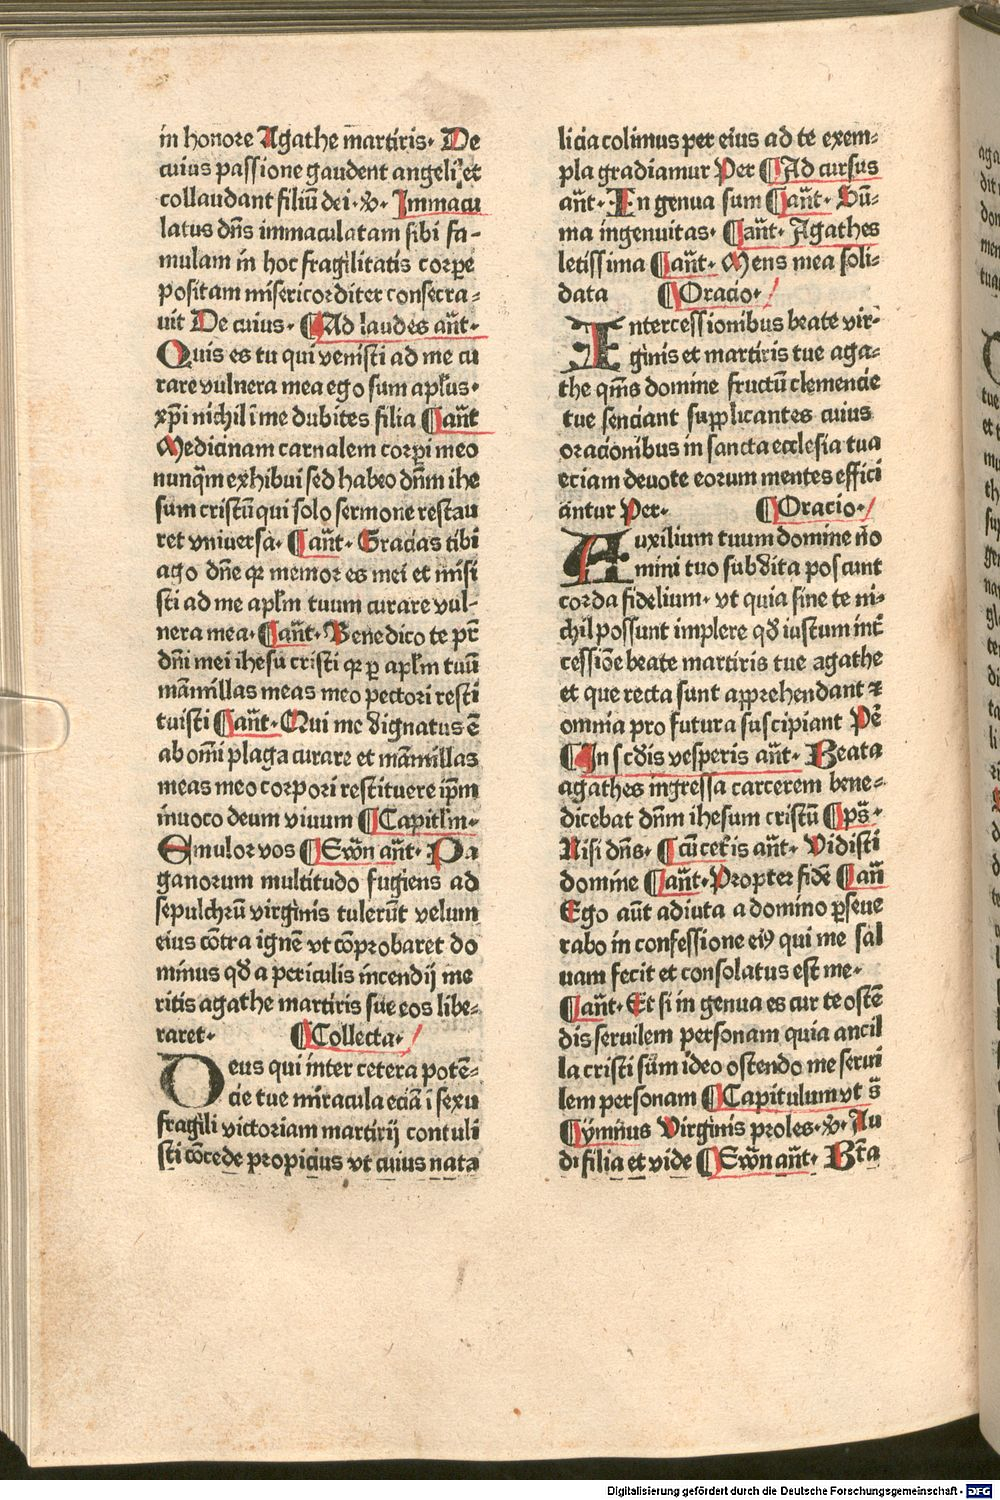 in honore Agathe martiris· De
cuius passione gaudent angeli et
collaudant filiū dei·v̄· Immacu
latus dn̄s immaculatam sibi fa-
mulam in hoc fragilitatis corpe
positam misericorditer consecra-
uit De cuius· ¶Ad laudes an̄t·
Quis es tu qui venisti ad me cu
rare vulnera mea ego sum apl̄us·
xp̄i nichil ī me dubites filia ¶an̄t
Medicinam carnalem corpi meo
nunq̄m exhibui sed habeo dn̄m ihe
sum cristū qui solo sermone restau
ret vniuersa· ¶an̄t· Gracias tibi
ago dn̄e qꝛ memor es mei et misi
sti ad me apl̄m tuum curare vul-
nera mea· ¶an̄t· Benedico te pr̄
dn̄i mei ihesu cristi qꝛ ꝑ apl̄m tuū
māmillas meas meo pectori resti
tuisti ¶an̄t· Qui me dignatus ē
ab om̄i plaga curare et māmillas
meas meo corpori restituere ip̄m
inuoco deum viuum ¶Capitl̄m·
Emulor vos ¶Ewn̄ an̄t· Pa
ganorum multitudo fugiens ad
sepulchrū virginis tulerūt velum
eius cōtra ignē vt cōprobaret do
minus qd̄ a periculis incendij me
ritis agathe martiris sue eos libe-
raret· ¶Collecta·
Deus qui inter cetera potē-
cie tue miracula eciā ī sexu
fragili victoriam martirij contuli
sti cōcede propicius vt cuius nata
licia colimus per eius ad te exem-
pla gradiamur Per ¶Ad cursus
an̄t· In genua sum ¶an̄t· Sū-
ma ingenuitas· ¶an̄t· Agathes
letissima ¶an̄t· Mens mea soli-
data ¶Oracio·
Intercessionibus beate vir-
ginis et martiris tue aga-
the qm̄s domine fructū clemencie
tue senciant supplicantes cuius
oracionibus in sancta ecclesia tua
eciam deuote eorum mentes effici
antur Per· ¶Oracio·
Auxilium tuum domine no
mini tuo subdita poscunt
corda fidelium· vt quia sine te ni-
chil possunt implere qd̄ iustum int̄
cessiōe beate martiris tue agathe
et que recta sunt apprehendant ⁊
omnia pro futura suscipiant Pē
¶In scd̄is vesperis an̄t· Beata
agathes ingressa carcerem bene-
dicebat dn̄m ihesum cristū ¶ps̄·
Nisi dn̄s· ¶cū cet̄is an̄t· Vidisti
domine ¶an̄t· Propter fidē ¶an̄
Ego aūt adiuta a domino ꝑseue
rabo in confessione eiꝰ qui me sal
uam fecit et consolatus est me·
¶an̄t· Et si in genua es cur te ostē
dis seruilem personam quia ancil
la cristi sum ideo ostendo me serui
lem personam ¶Capitulum vt s̄
¶ymnus Virginis proles·v̄· Au
di filia et vide ¶Ewn̄ an̄t· Bt̄a
Digitalisierung gefördert durch die Deutsche Forschungsgemeinschaft - DFG